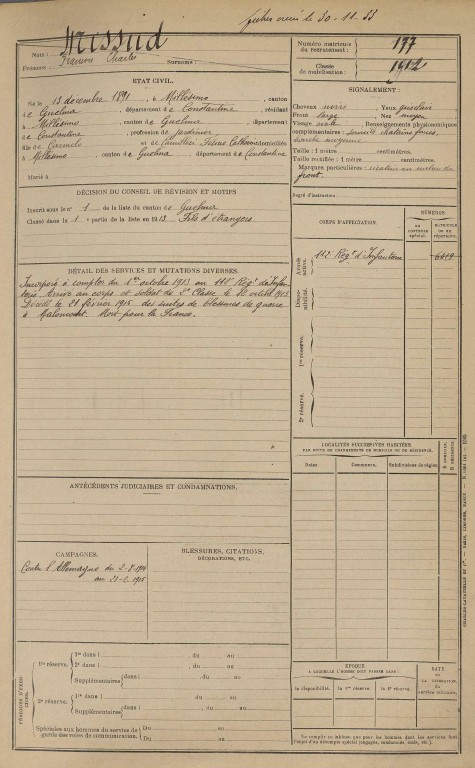 fiches créé le 30-11-33
Nom : Missud
Prénoms : Charles Surnoms :
Numéro matricule du recrutement : 177
Classe de mobilisation : 1912
ÉTAT CIVIL.
Né le 13 décembre 1891, à Millesimo, canton
d e Guelma, département d e Constantine, résidant
à Millesimo, canton d e Guelma, département
d e Constantine, profession de jardinier
fils de Carmelo et de domiciliés
à Millesimo, canton d e Guelma, département d e Constantine
Marié à
SIGNALEMENT :
Cheveux noirs Yeux
Front large Nez moyen
Visage Renseignements physionomiques
complémentaires :
Taille : 1 mètre centimètres.
Taille rectifiée : 1 mètre centimètres.
Marques particulières : au milieu du
front.
Degré d'instruction
DÉCISION DU CONSEIL DE RÉVISION ET MOTIFS
Inscrit sous le n° 1 de la liste du canton de Guelma
Classé dans la 1 e partie de la liste en 1913 Fils d'étrangers
CORPS D'AFFECTATION.
NUMÉROS
AU CONTRÔLE SPÉCIAL.
MATRICULE OU AU RÉPERTOIRE.
Armée active.
112e Régt d'Infanterie
6419
Disponibilité.
1re réserve.
2e réserve.
DÉTAIL DES SERVICES ET MUTATIONS DIVERSES.
Incorporé à compter du 1er octobre 1913 au 112e Régt d'Infan-
terie. Arrivé au corps et soldat de 2e Classe le octobre 1913
Décédé le février 1915 des suites de blessures de guerre
à Mort pour la France.
LOCALITÉS SUCCESSIVES HABITÉES
PAR SUITE DE CHANGEMENTS DE DOMICILE OU DE RÉSIDENCE.
Dates Communes. Subdivisions de région. D. DOMICILE. R. RÉSIDENCE.
ANTÉCÉDENTS JUDICIAIRES ET CONDAMNATIONS.
CAMPAGNES.
Contre l'Allemagne du 2-8-1914
au 2-1915
BLESSURES, CITATIONS,
DÉCORATIONS, ETC.
PÉRIODES D'EXERCICES.
1re réserve. 1re dans l du au
2e dans l du au
Supplémentaires dans l du au
2e réserve. 1re dans l du au
Supplémentaires dans l du au
Spéciales aux hommes du service de
gardes des voies de communication.
Du au
Du au
ÉPOQUE
À LAQUELLE L'HOMME DOIT PASSER DANS :
la disponibilité. la 1re réserve. la 2e réserve.
DATE
DE LA LIBÉRATION DU SERVICE MILITAIRE.